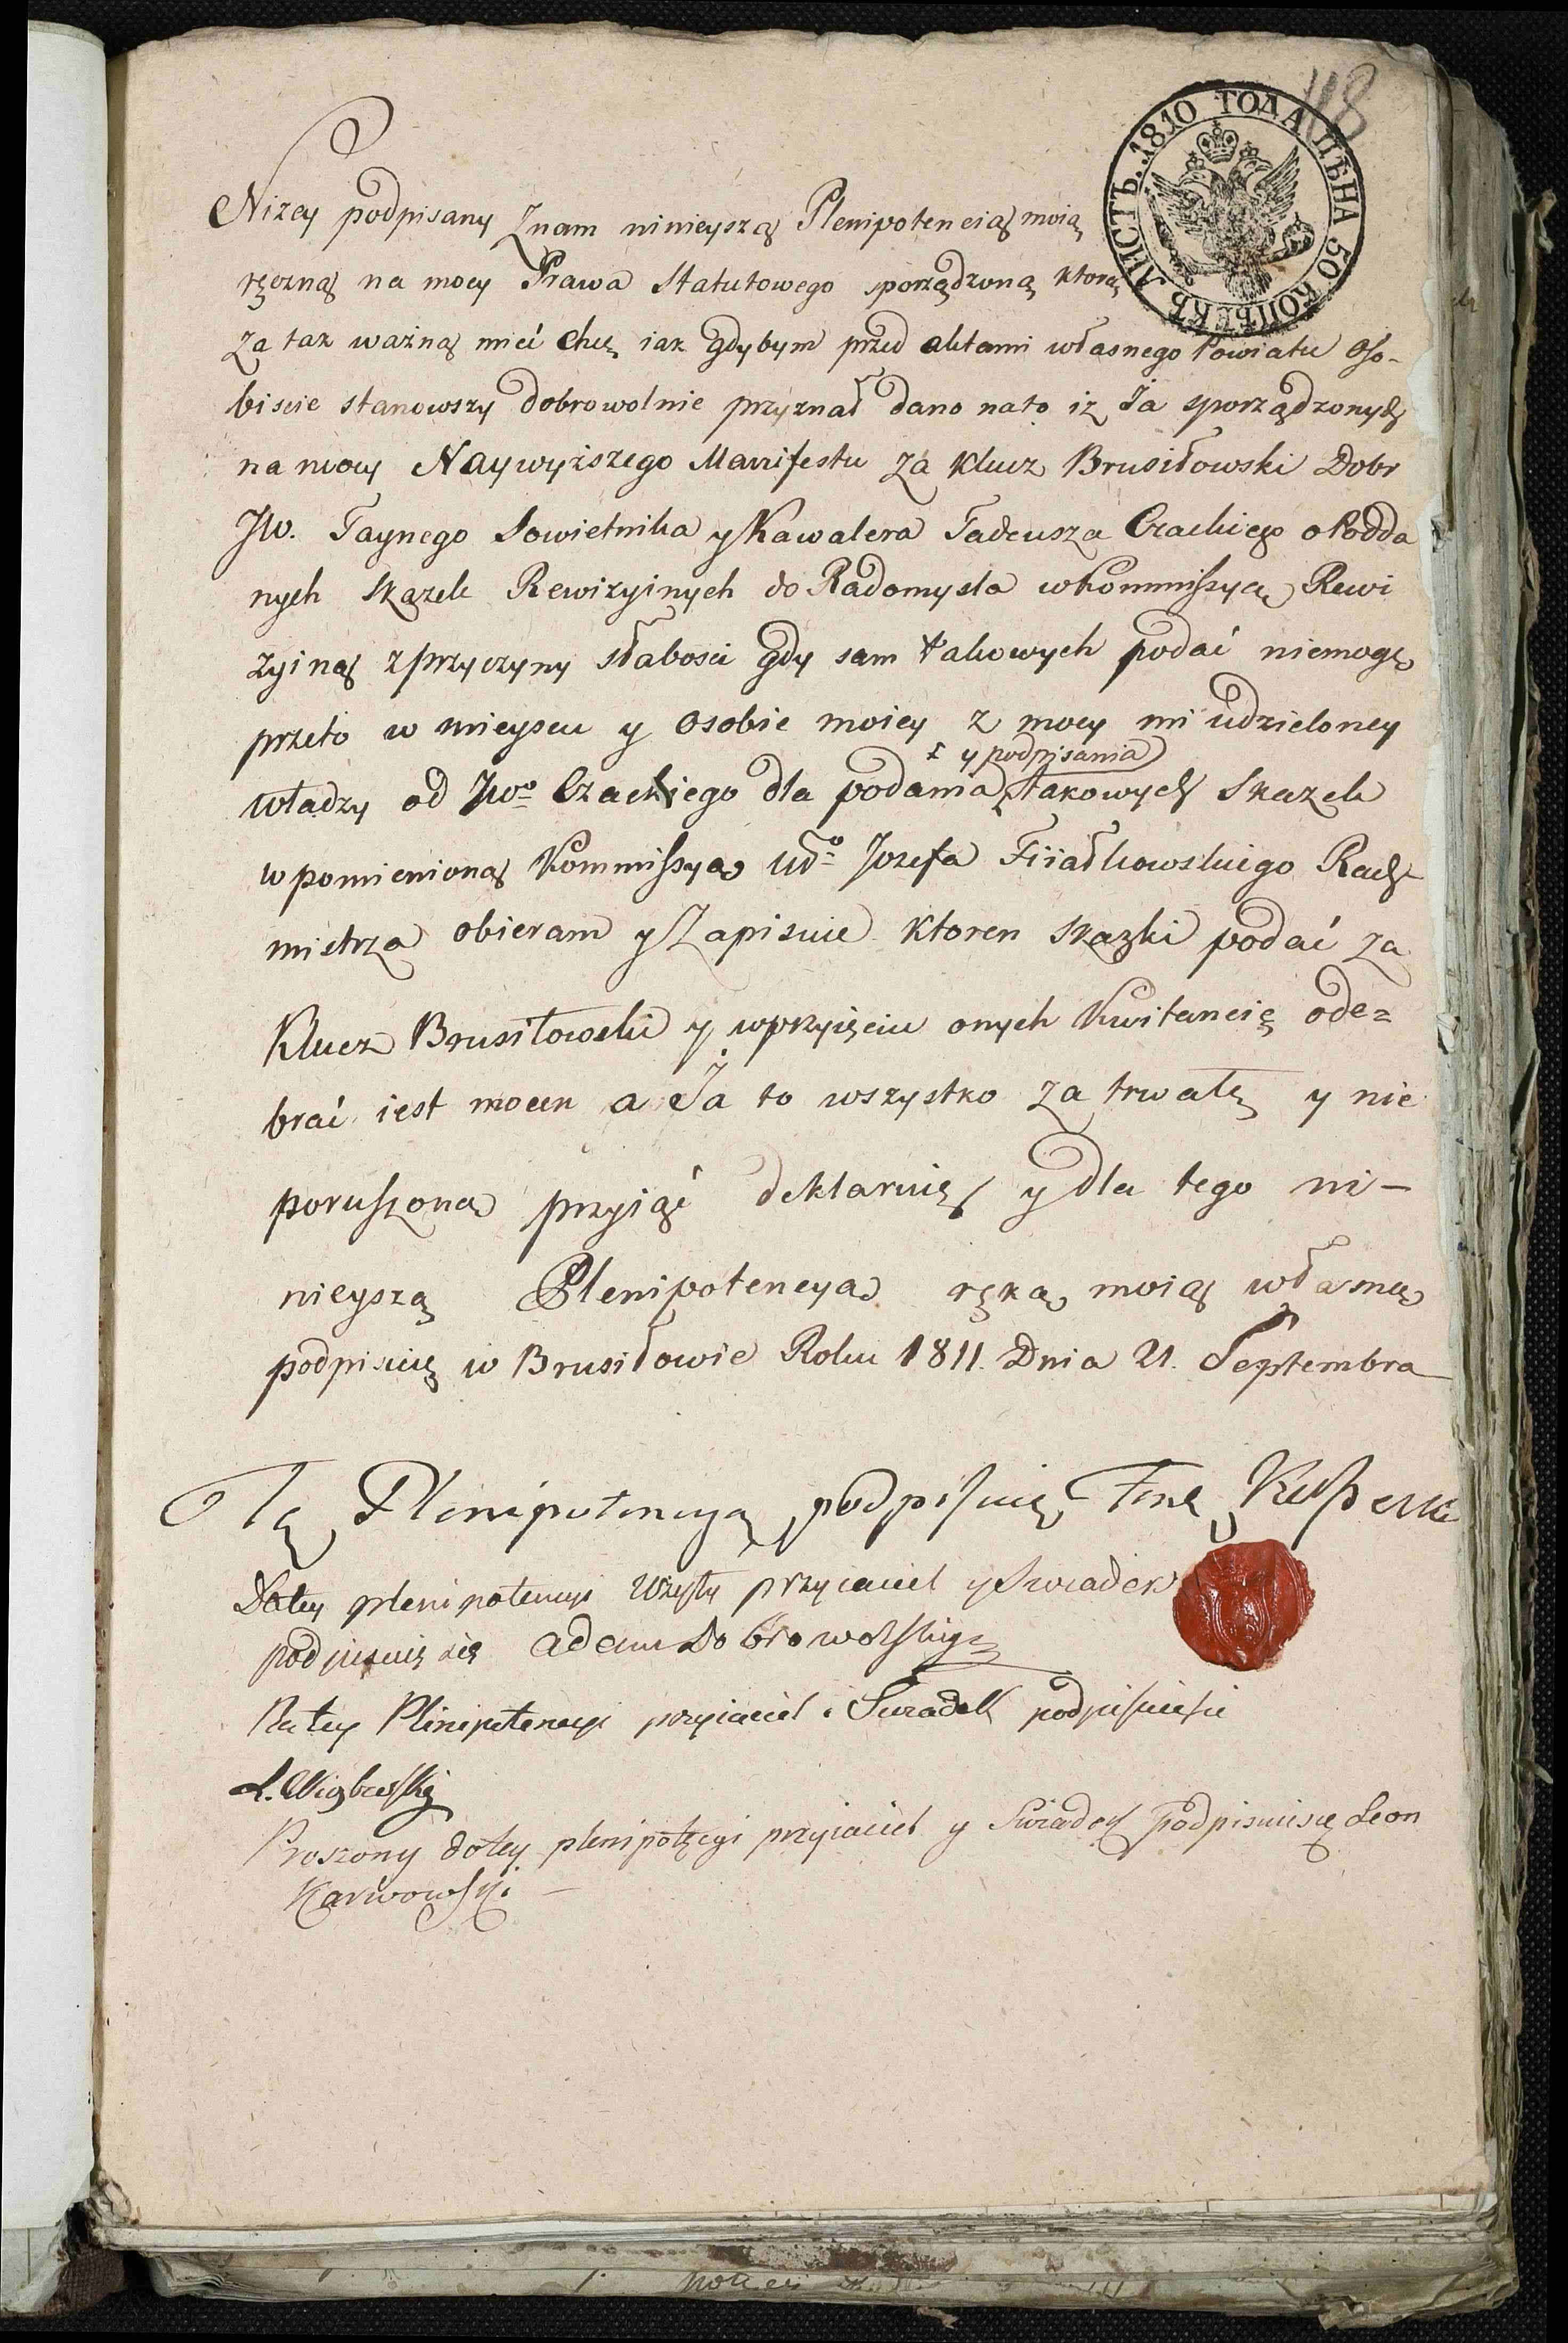 118
ЛИСТЪ. 1810 ГОДА ЦѢНА 50 КОПѢЕКЪ
Nizey podpisany Znam ninieyszą Plenipotencią moią
ręczną na mocy Prawa Statutowego sporządzoną ktorą
Za tak ważną mieć chcę iak gdybym przed aktami własnego Powiatu Oso-
biscie stanowszy dobrowolnie przyznał dano na to iz Ja sporządzonych
na mocy Naywyższego Manifestu za Klucz Brusiłowski Dobr
JW. Taynego Sowietnika y Kawalera Tadeusza Czackiego o Podda
nych Skazek Rewizyinych do Radomysla w Kommissyą Rewi
zyiną z przyczyny słabosci gdy sam takowych podać niemogę
przeto w mieyscu y osobie moiey z mocy mi udzieloney
y podpisania
władzy od JWo Czackiego dla podania takowych Skazek
w pomienioną Kommissyą Wo Jozefa Fiiałkowskiego Rach
mistrza obieram y Zapisuie ktoren skazki podać za
Klucz Brusiłowski y w przyięciu onych Kwitancię ode=
brać iest mocen a Ja to wszystko za trwałą y nie
poruszoną przyiąć deklaruię y dla tego ni-
nieyszą Plenipotencyą ręką moią własną
podpisuię w Brusiłowie Roku 1811. Dnia 21. Septembra
Tę Plenipotencyą podpisuię
Do tey plenipotencyi Użyty przyiaciel y Swiadek
podpisuię się Adam Dobrowolski
Do tey Plenipotencyi przyiaciel i Swiadek podpisuie sie
Proszony do tey plenipotęcyi przyiaciel y Swiadek podpisuie się Leon
Karwowski